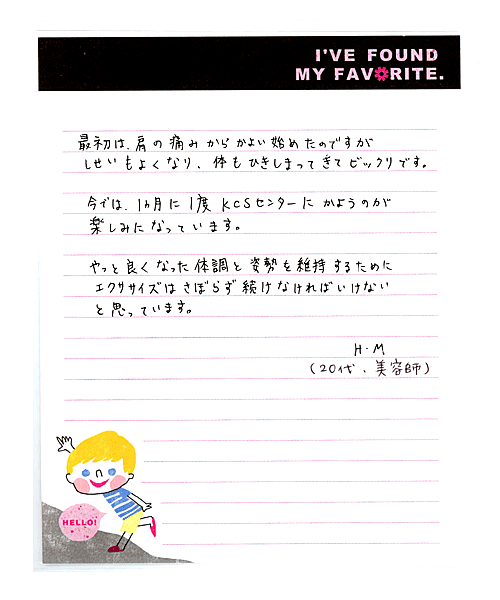 I'VE FOUND
MY FAVORITE.
最初は、肩の痛みからかよい始めたのですが
しせいもよくなり、体もひきしまってきてビックリです。
今では、1ヵ月に1度KCSセンターにかようのが
楽しみになっています。
やっと良くなった体調と姿勢を維持するために
エクササイズはさぼらず続けなければいけない
と思っています。
H・M
(20代、美容師)
HELLO!